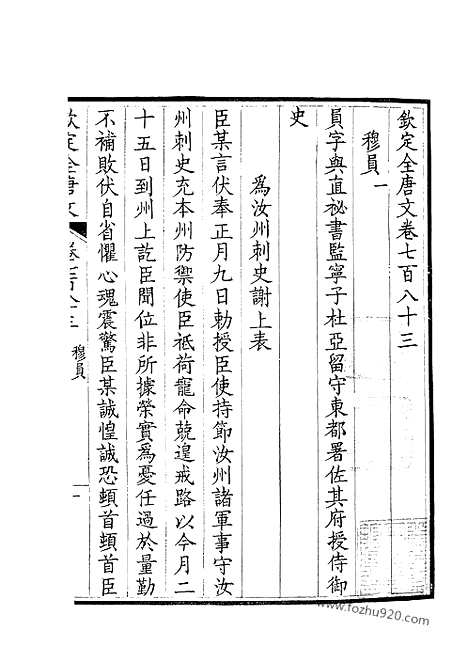 欽定全唐文卷七百八十三
穆員一
員字與直祕書監寧子杜亞留守東都署佐其府授侍御
史
為汝州刺史謝上表
臣某言伏奉正月九日勅授臣使持節汝州諸軍事守汝
州刺史充本州防禦使臣祗荷寵命兢遑戒路以今月二
十五日到州上訖臣聞位非所據榮實為憂任過於量勤
不補敗伏自省懼心魂震驚臣某誠惶誠恐頓首頓首臣
欽定全唐文 卷七百八十三 穆員 一
www.fozhu920.com